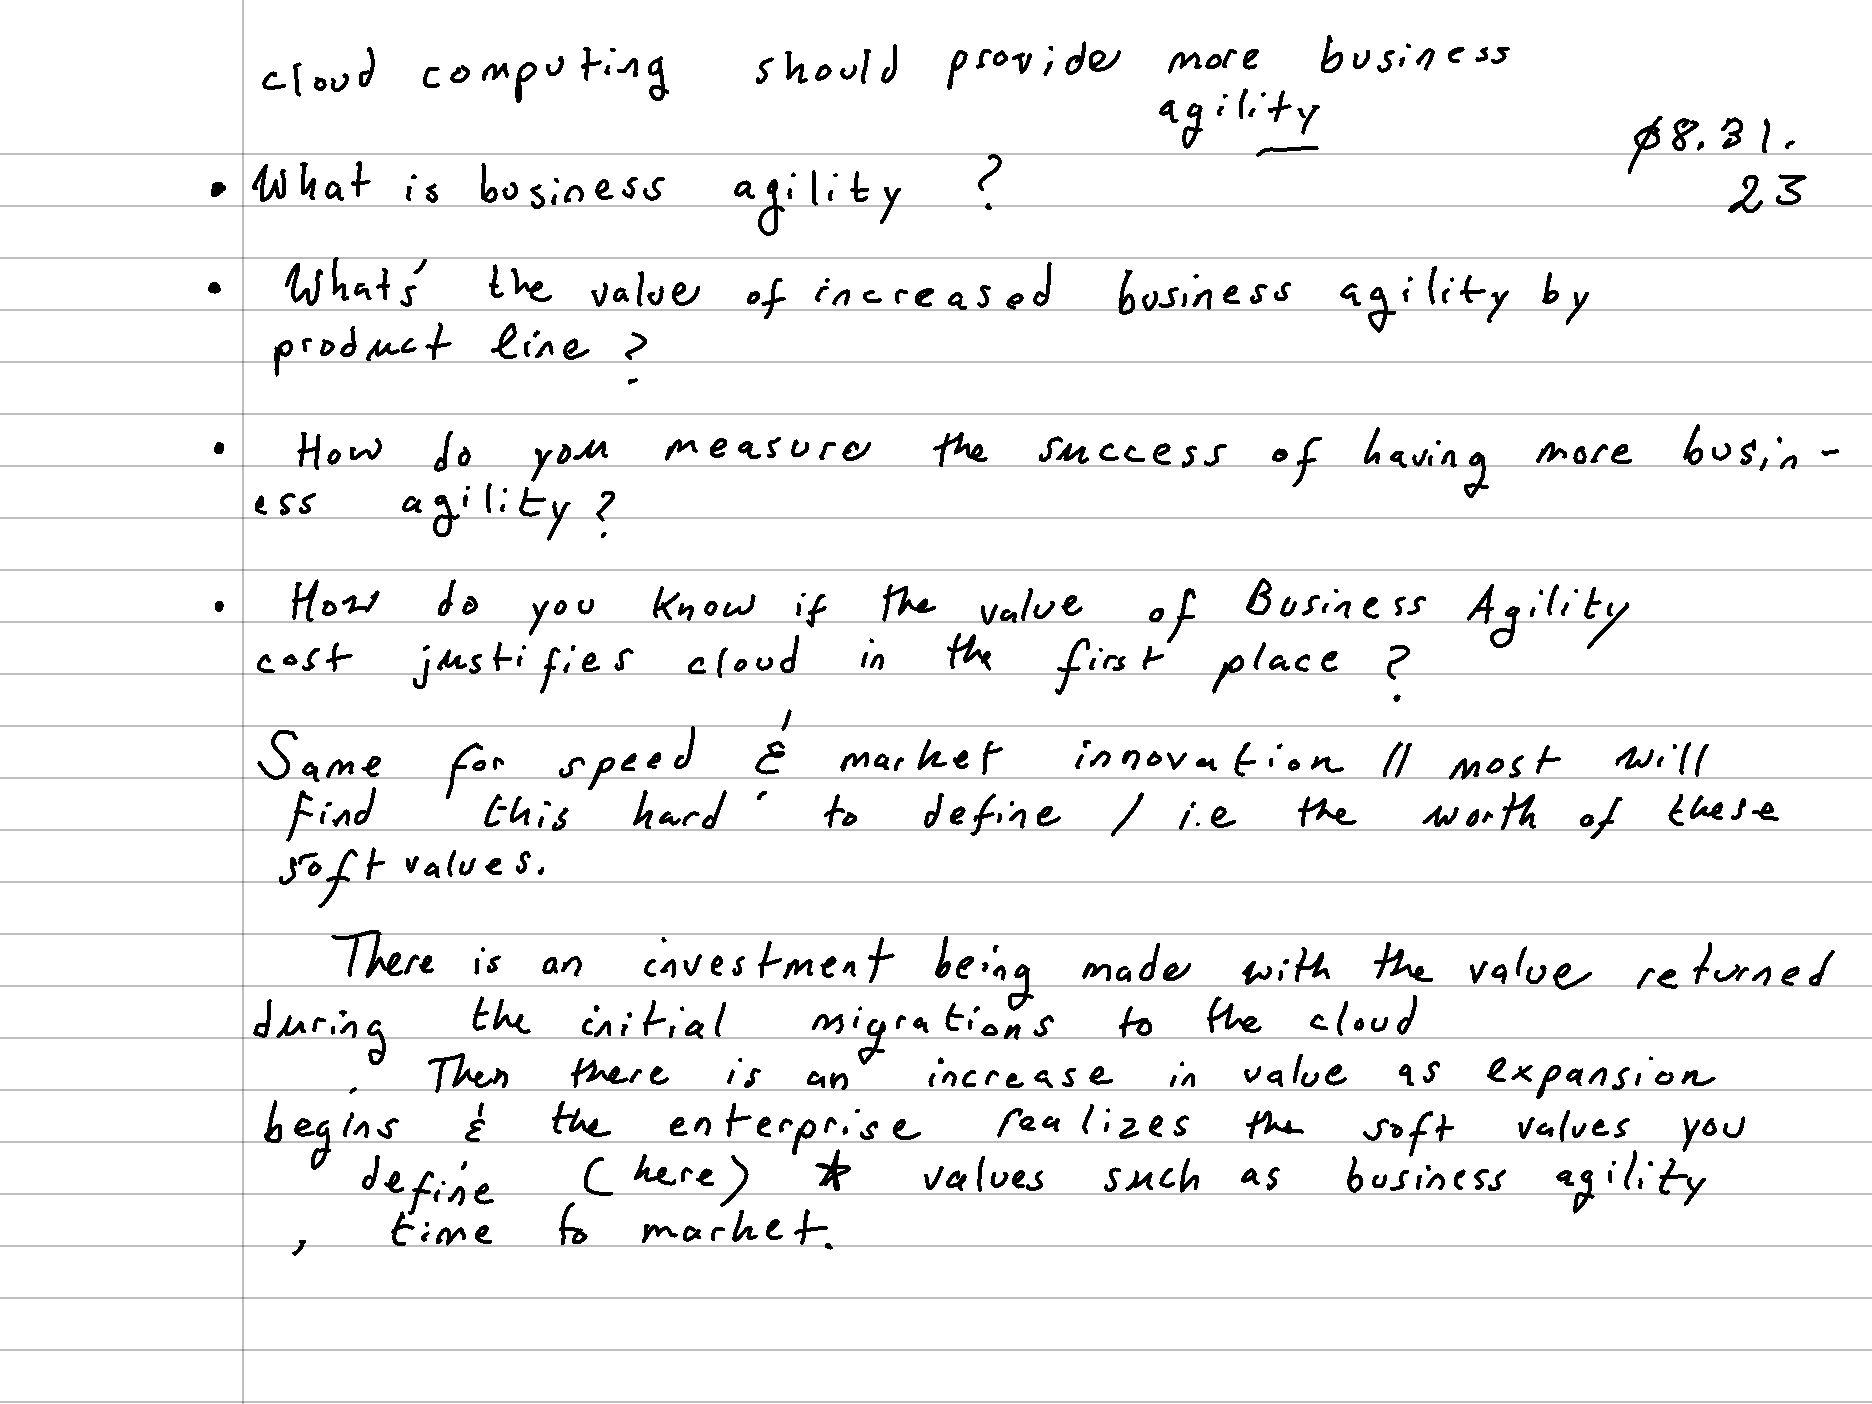 cloud computing should provide more business
agility
ø8.31.
23
• What is business agility ?
• What's the value of increased business agility by
product line ?
• How do you measure the success of having more busin-
ess agility ?
• How do you know if the value of Business Agility
cost justifies cloud in the first place ?
Same for speed & market innovation // most will
find this hard to define / i.e the worth of these
soft values.
There is an investment being made with the value returned
during the initial migrations to the cloud
. Then there is an increase in value as expansion
begins & the enterprise realizes the soft values you
define (here) * values such as business agility
, time to market.